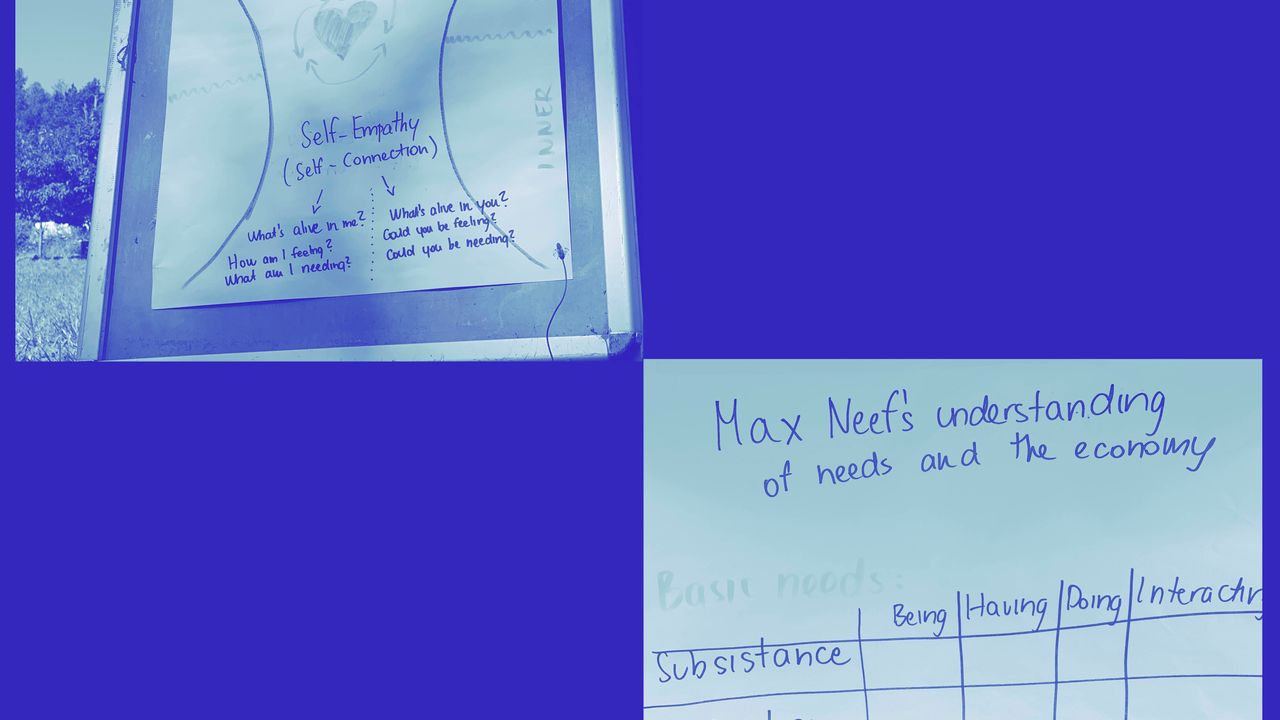 Self-Empathy
(Self-Connection)
What's alive in me?
How am I feeling?
What am I needing?
What's alive in you?
Could you be feeling?
Could you be needing?
INNER
Max Neef's understanding
of needs and the economy
Basic needs:
Being Having Doing Interactin
Subsistance